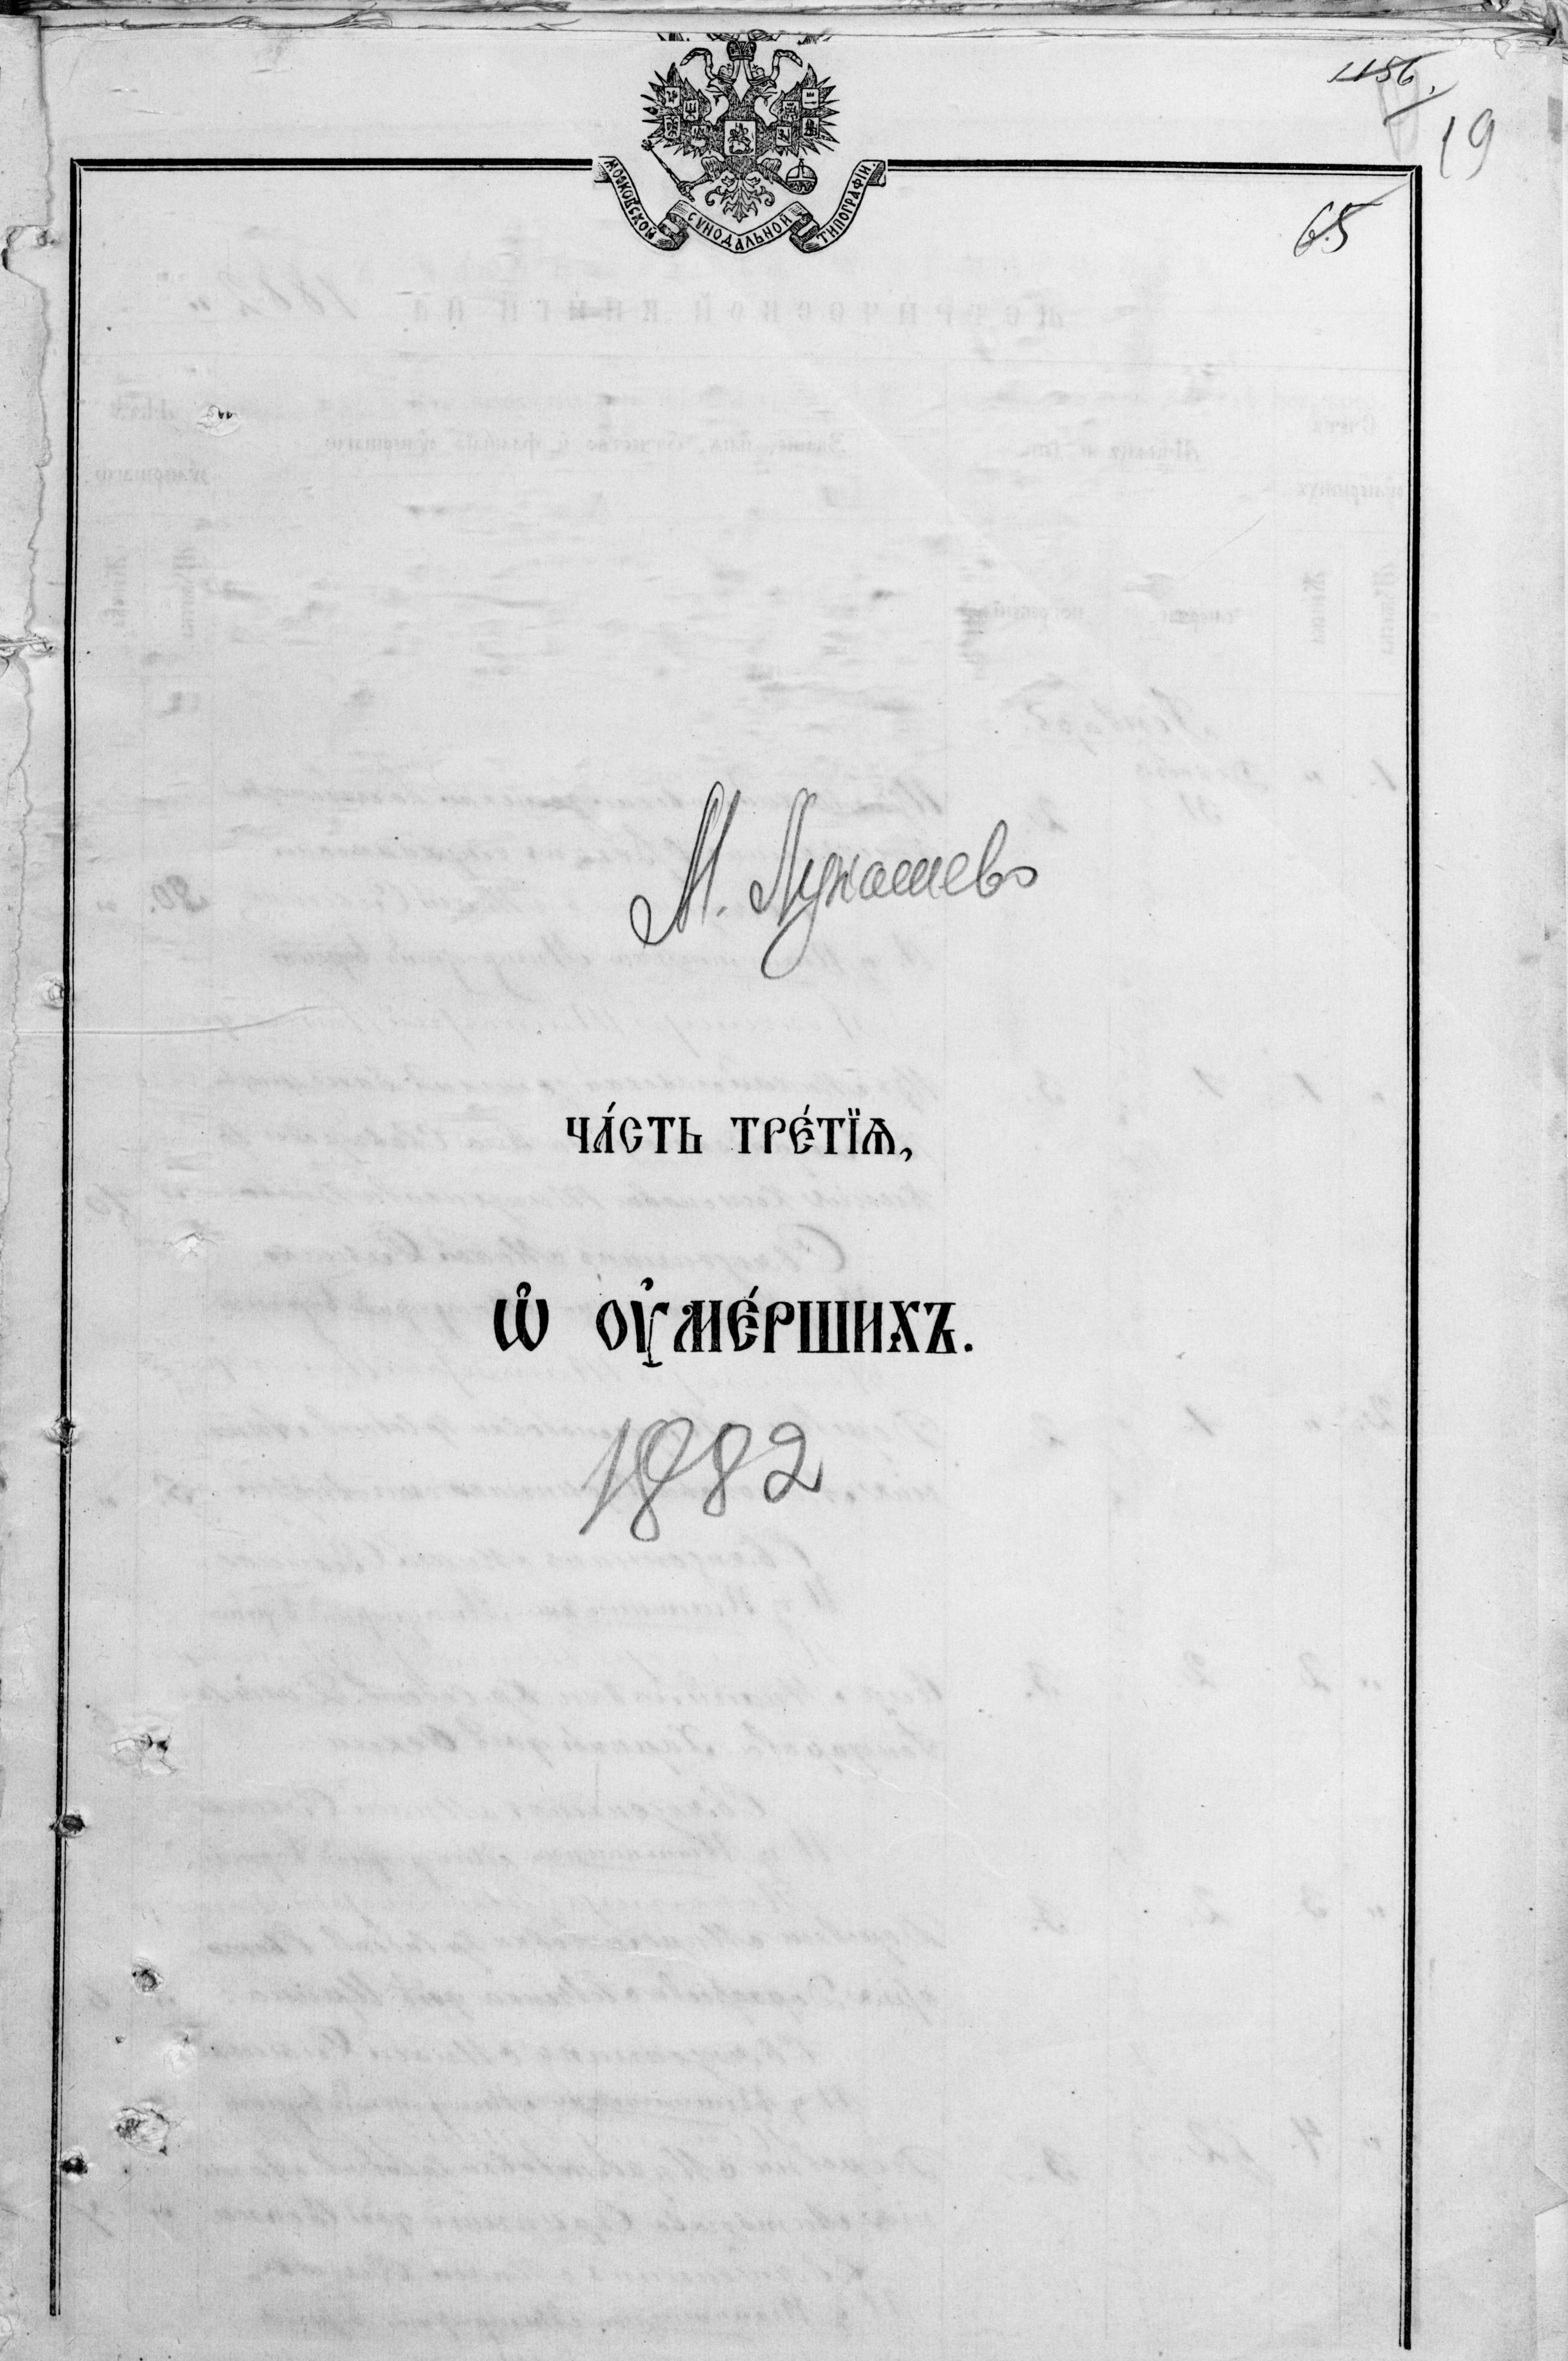 1156.
19
МОСКОВСКОЙ СѴНОДАЛЬНОЙ ТИПОГРАФІИ.
65
М. Лукашевъ
ЧА́СТЬ ТРЕ́ТЇѦ,
Ѡ҆ ОУ҆МЕ́РШИХЪ.
1882